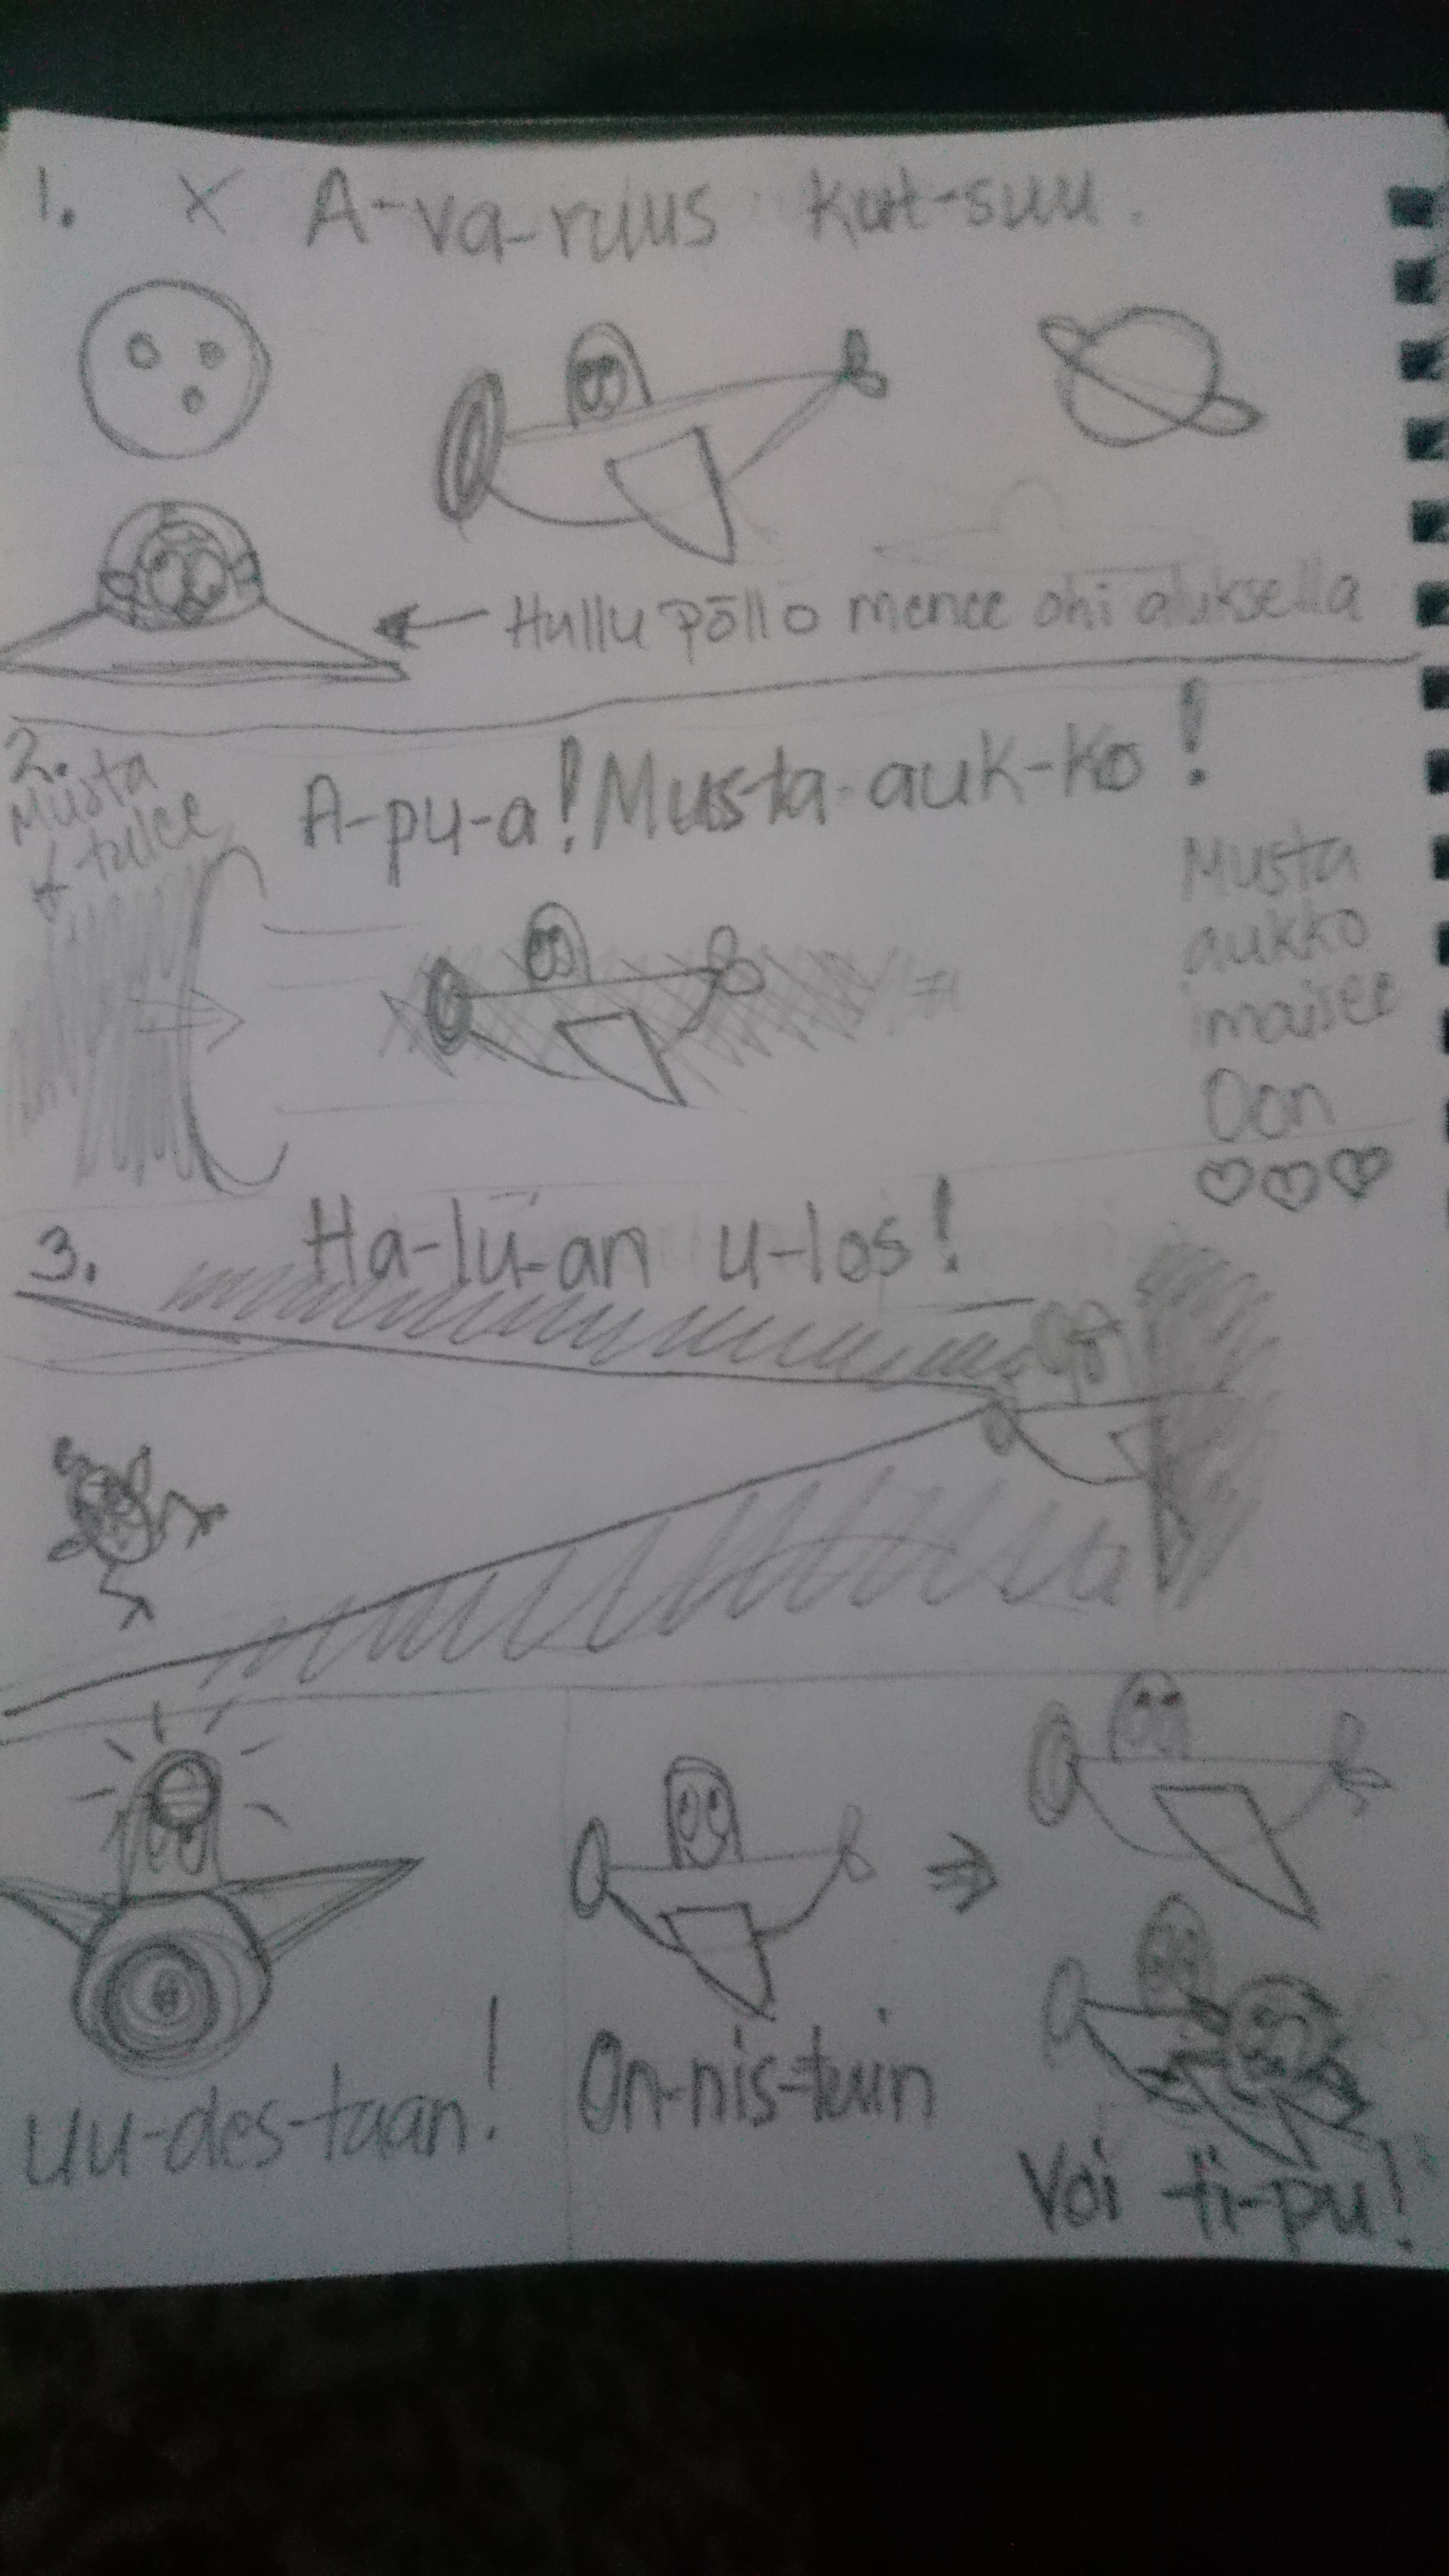 1. X A-va-ruus kut-suu.
← Hullu pöllö menee ohi aluksella
2.
Musta
tulee
A-pu-a! Mus-ta-auk-ko!
Musta
aukko
imaisee
♡♡♡
3. Ha-lu-an u-los!
Uu-des-taan!
On-nis-tuin
Voi ti-pu!